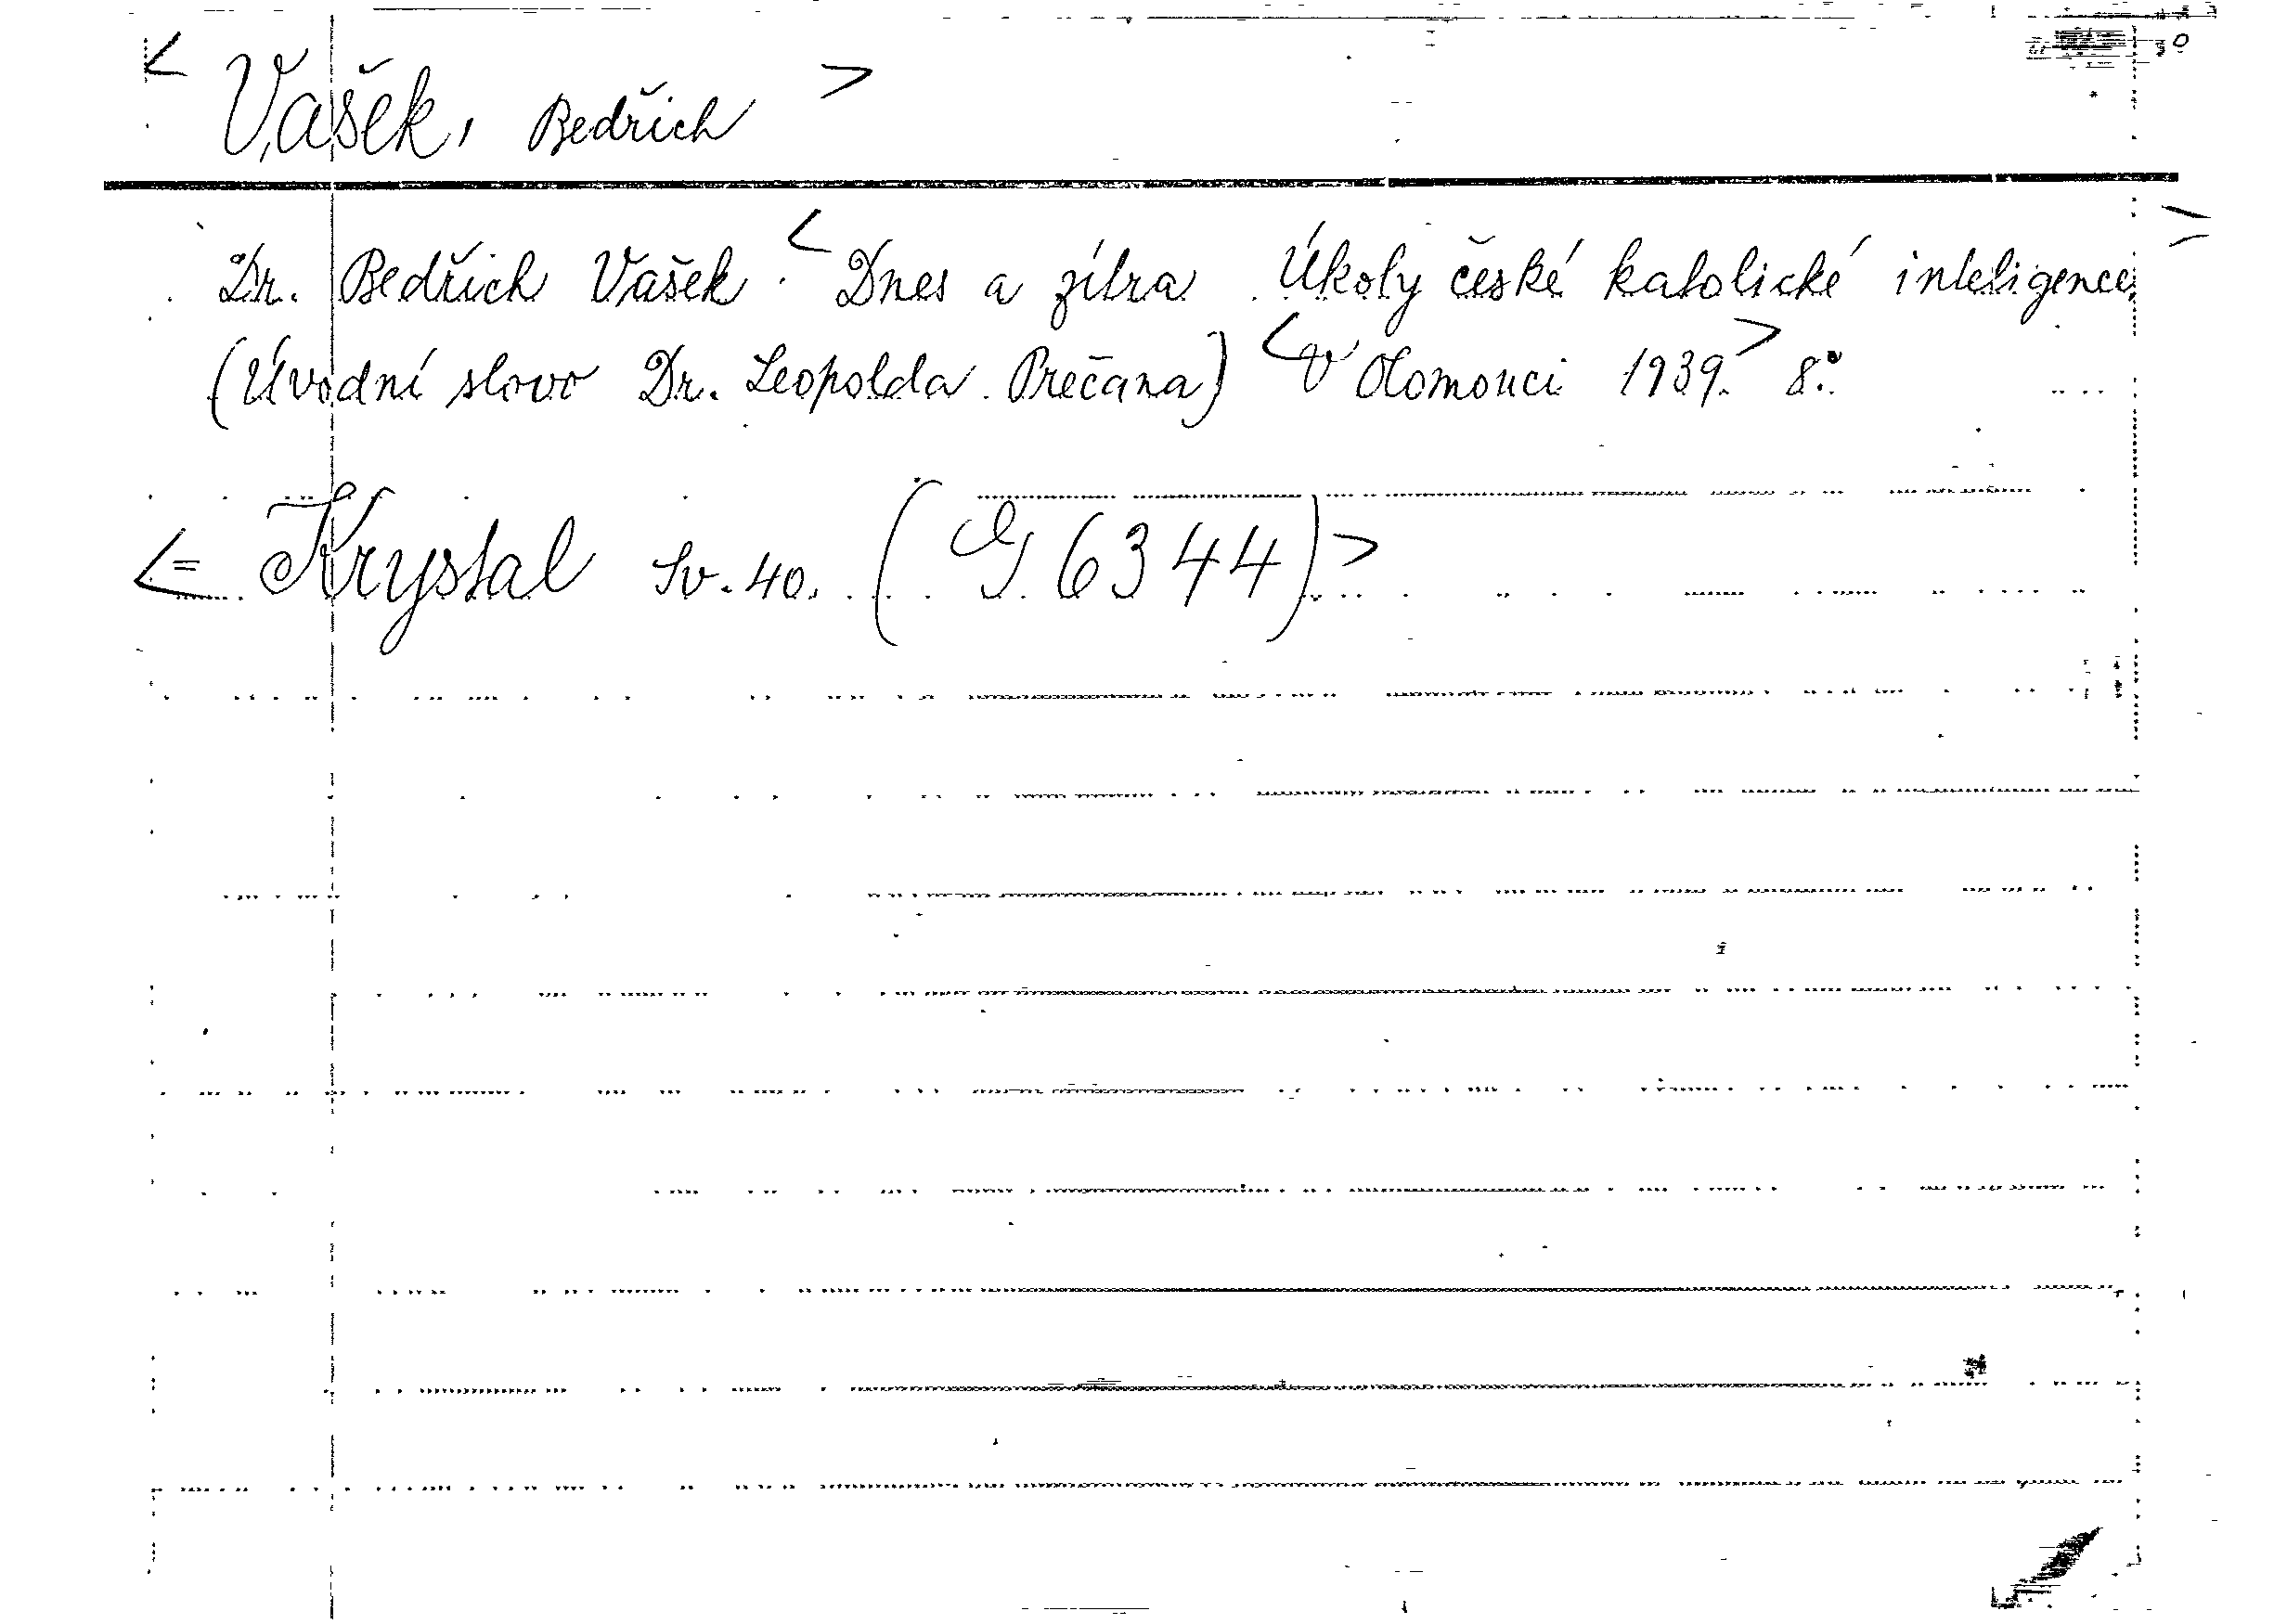 < Vašek, Bedřich >
Dr. Bedřich Vašek. < Dnes a zítra. Úkoly české katolické inteligence. >
(Úvodní slovo Dr. Leopolda Prečana) < V Olomouci 1939. > 8°.
<= Krystal Sv. 40. (G 6344) >